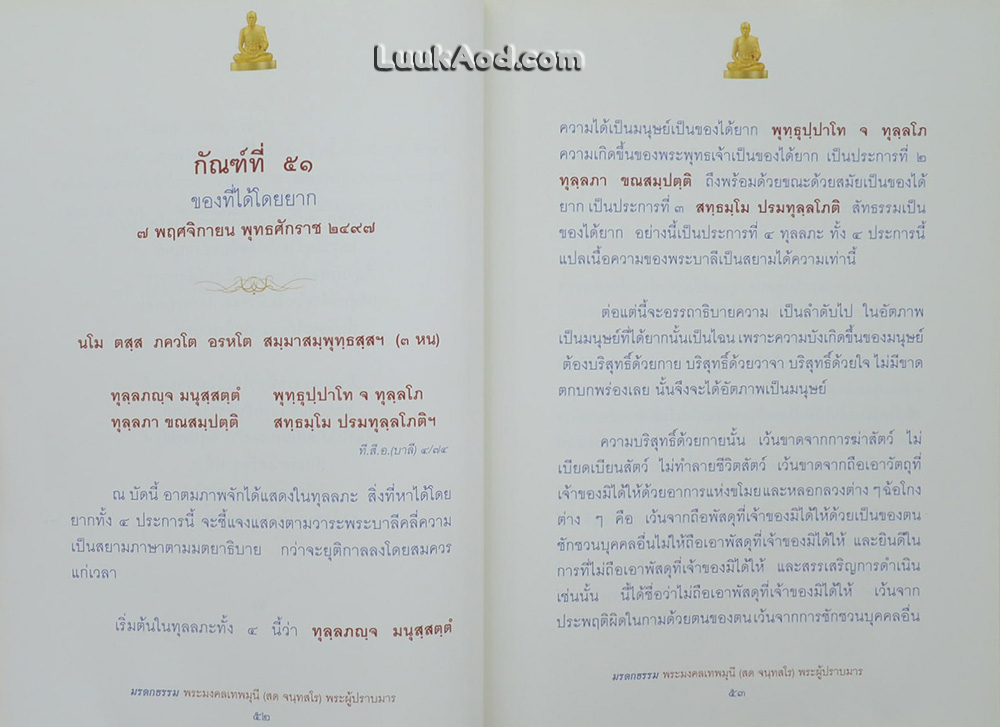 LuukAod.com
กัณฑ์ที่ ๕๑
ของที่ได้โดยยาก
๗ พฤศจิกายน พุทธศักราช ๒๔๙๗
นโม ตสฺส ภควโต อรหโต สมฺมาสมฺพุทฺธสฺสฯ (๓ หน)
ทุลฺลภญฺจ มนุสฺสตฺตํ พุทฺธุปฺปาโท จ ทุลฺลโภ
ทุลฺลภา ขณสมฺปตฺติ สทฺธมฺโม ปรมทุลฺลโภติฯ
ที.สี.อ.(บาลี) ๔/๘๔
ณ บัดนี้ อาตมภาพจักได้แสดงในทุลลภะ สิ่งที่หาได้โดย
ยากทั้ง ๔ ประการนี้ จะชี้แจงแสดงตามวาระพระบาลีคลี่ความ
เป็นสยามภาษาตามมตยาธิบาย กว่าจะยุติกาลลงโดยสมควร
แก่เวลา
เริ่มต้นในทุลลภะทั้ง ๔ นี้ว่า ทุลฺลภญฺจ มนุสฺสตฺตํ
มรดกธรรม พระมงคลเทพมุนี (สด จนฺทสโร) พระผู้ปราบมาร
๕๒
ความได้เป็นมนุษย์เป็นของได้ยาก พุทฺธุปฺปาโท จ ทุลฺลโภ
ความเกิดขึ้นของพระพุทธเจ้าเป็นของได้ยาก เป็นประการที่ ๒
ทุลฺลภา ขณสมฺปตฺติ ถึงพร้อมด้วยขณะด้วยสมัยเป็นของได้
ยาก เป็นประการที่ ๓ สทฺธมฺโม ปรมทุลฺลโภติ สัทธรรมเป็น
ของได้ยาก อย่างนี้เป็นประการที่ ๔ ทุลลภะ ทั้ง ๔ ประการนี้
แปลเนื้อความของพระบาลีเป็นสยามได้ความเท่านี้
ต่อแต่นี้จะอรรถาธิบายความ เป็นลำดับไป ในอัตภาพ
เป็นมนุษย์ที่ได้ยากนั้นเป็นไฉน เพราะความบังเกิดขึ้นของมนุษย์
ต้องบริสุทธิ์ด้วยกาย บริสุทธิ์ด้วยวาจา บริสุทธิ์ด้วยใจ ไม่มีขาด
ตกบกพร่องเลย นั้นจึงจะได้อัตภาพเป็นมนุษย์
ความบริสุทธิ์ด้วยกายนั้น เว้นขาดจากการฆ่าสัตว์ ไม่
เบียดเบียนสัตว์ ไม่ทำลายชีวิตสัตว์ เว้นขาดจากถือเอาวัตถุที่
เจ้าของมิได้ให้ด้วยอาการแห่งขโมยและหลอกลวงต่าง ๆ ฉ้อโกง
ต่าง ๆ คือ เว้นจากถือพัสดุที่เจ้าของมิได้ให้ด้วยเป็นของตน
ชักชวนบุคคลอื่นไม่ให้ถือเอาพัสดุที่เจ้าของมิได้ให้ และยินดีใน
การที่ไม่ถือเอาพัสดุที่เจ้าของมิได้ให้ และสรรเสริญการดำเนิน
เช่นนั้น นี้ได้ชื่อว่าไม่ถือเอาพัสดุที่เจ้าของมิได้ให้ เว้นจาก
ประพฤติผิดในกามด้วยตนของตน เว้นจากการชักชวนบุคคลอื่น
มรดกธรรม พระมงคลเทพมุนี (สด จนฺทสโร) พระผู้ปราบมาร
๕๓